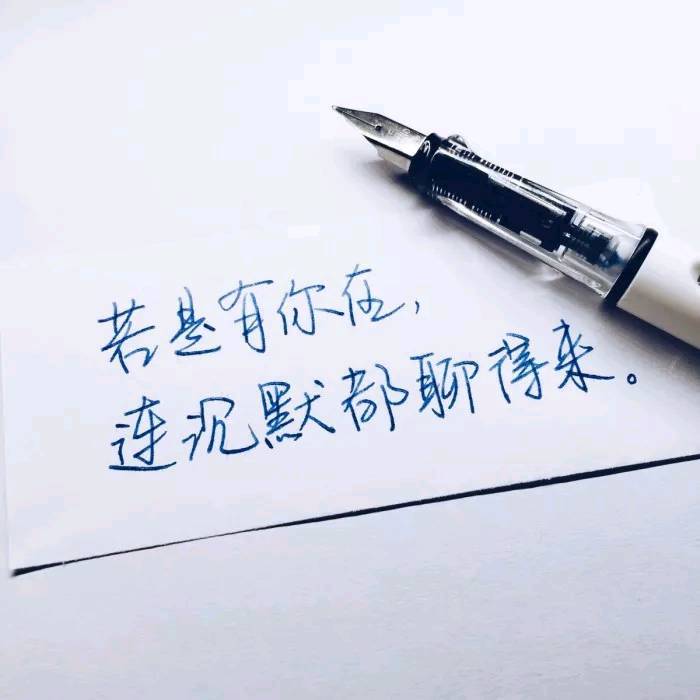 若是有你在,
连沉默都聊得来。